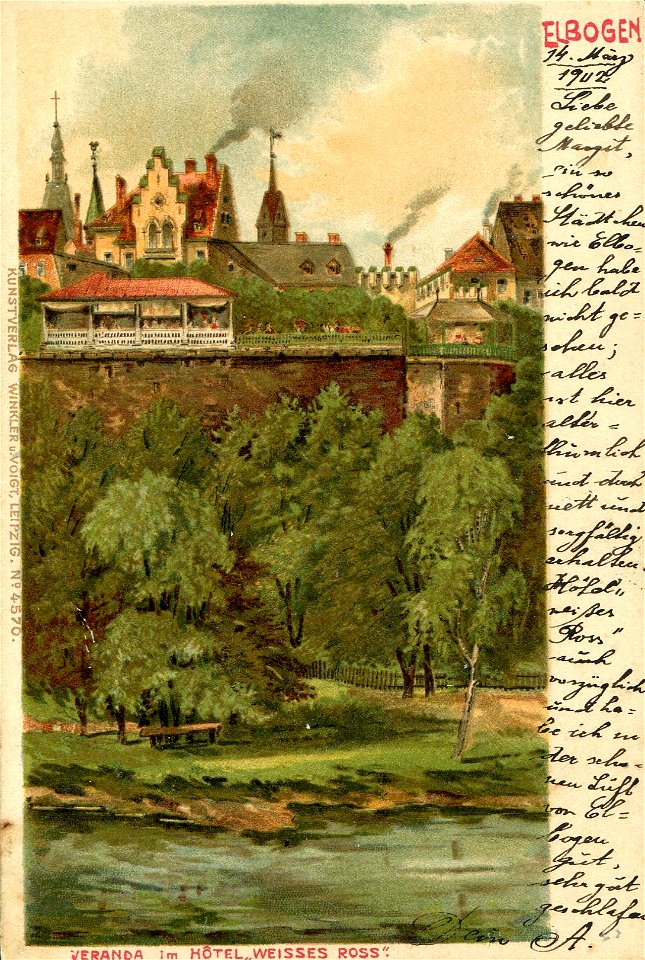 ELBOGEN
14. März
1902
Liebe
geliebte
Margit,
ein so
schönes
Städtchen
wie Elbo-
gen habe
ich bald
nicht ge=
sehen;
alles
ist hier
alter=
thümlich
und doch
nett und
sorgfältig
erhalten.
Hôtel „
weißes
Ross"
auch
vorzüglich
und ha=
be ich in
der schö=
nen Luft
von El=
bogen
gut,
sehr gut
geschlafen
Dein A.
KUNSTVERLAG WINKLER u. VOIGT, LEIPZIG. No 4570.
VERANDA im HÔTEL „WEISSES ROSS".